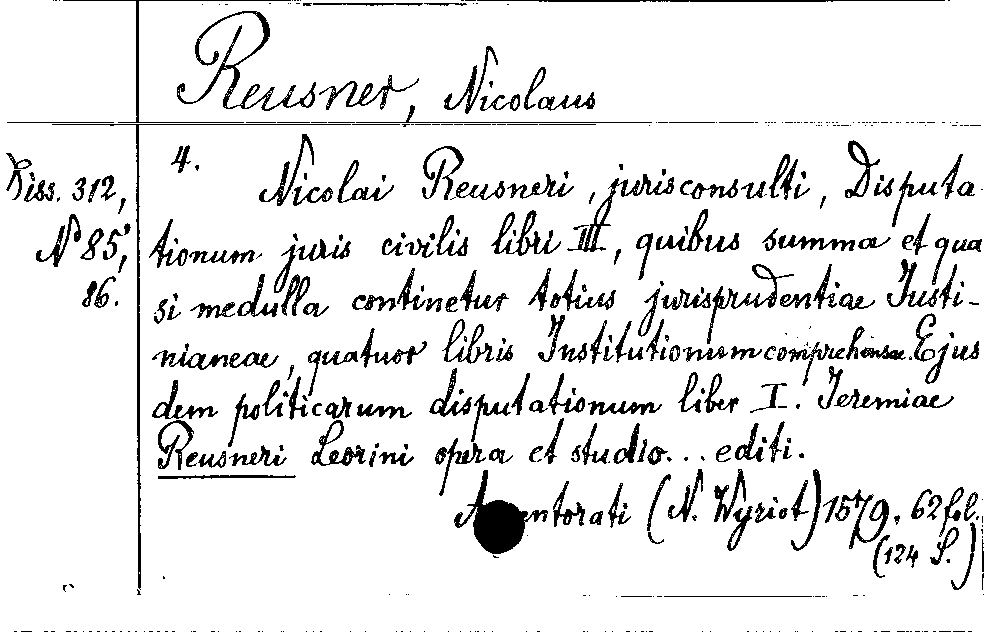 Reusner, Nicolaus
4.
Diss. 312,
Nº 85,
86.
Nicolai Reusneri, jurisconsulti, Disputa-
tionum juris civilis libri III, quibus summa et qua
si medulla continetur totius jurisprudentiae Justi-
nianeae, quatuor libris Institutionum comprehensae. Ejus
dem politicarum disputationum liber I. Jeremiae
Reusneri Leorini opera et studio... editi.
entorati (N. Wyriot) 1579. 62 fol.
(124 S.)